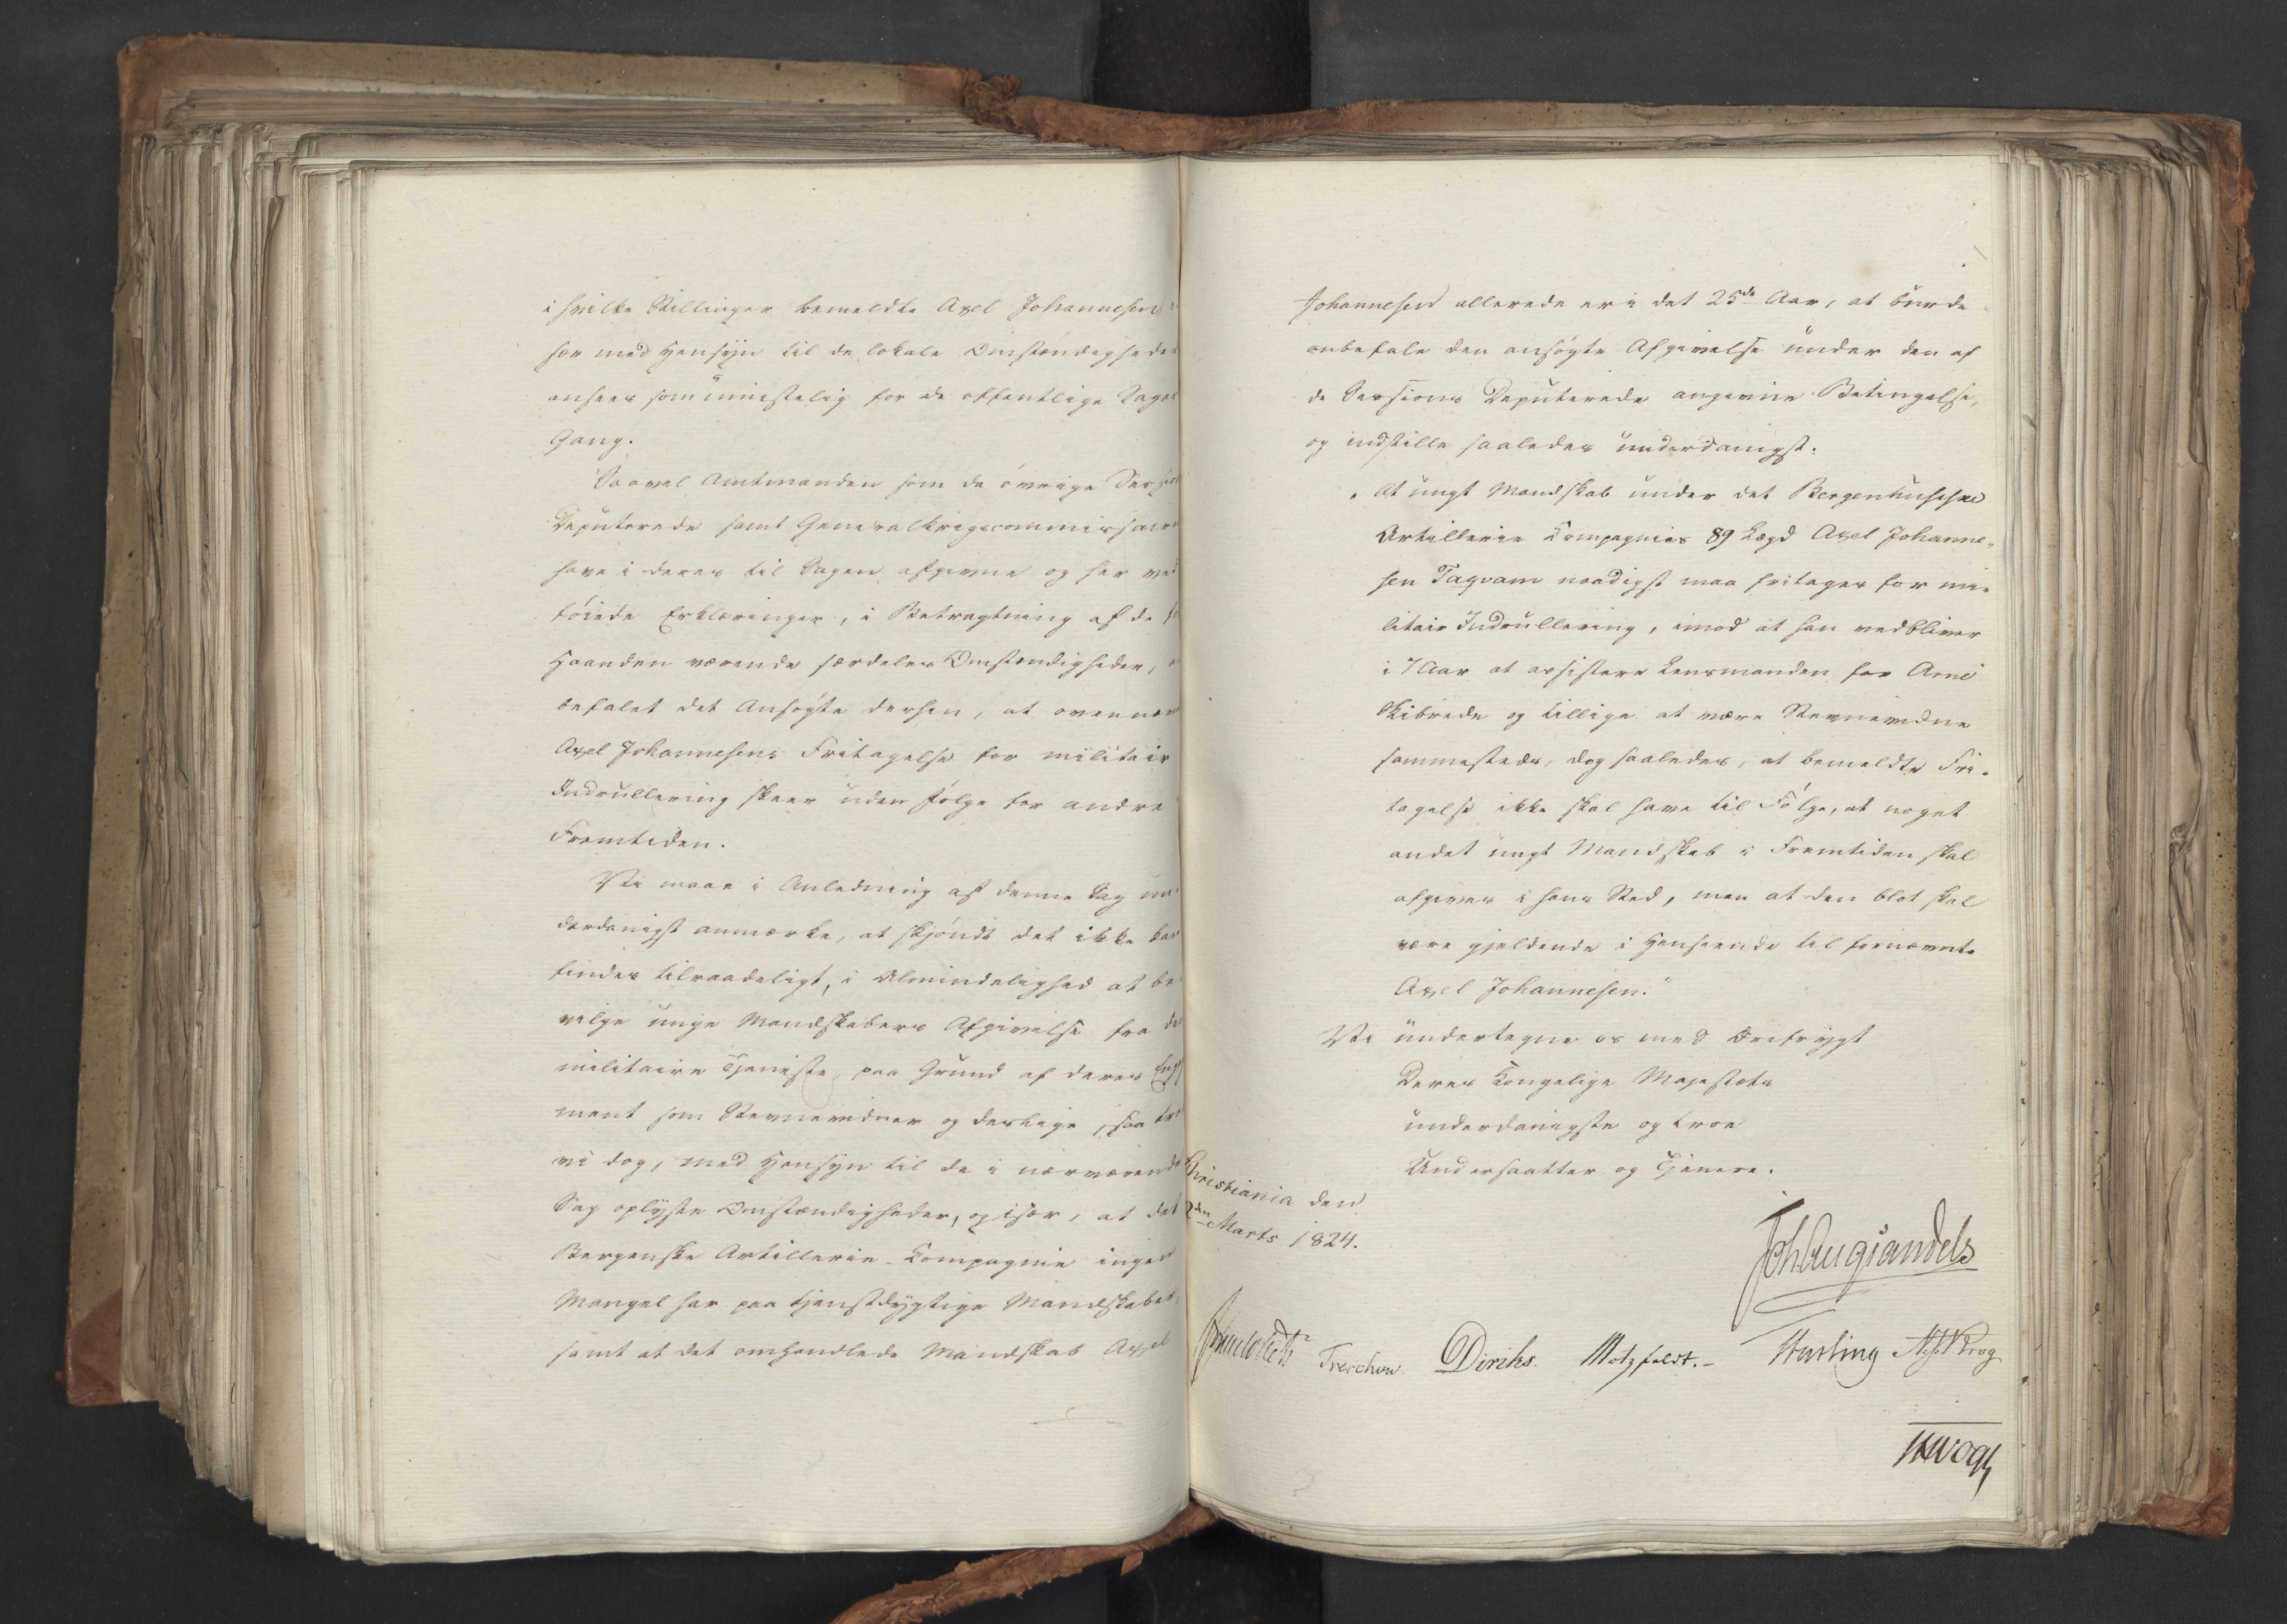 i hvilke Stillinger bemeldte Axel Johannesen
især med Hensyn til de lokale Omstændigheder
ansees som umistelig for de offentlige Sagers
Gang.
Saavel Amtmanden som de övrige Sessions
Deputerede samt Generalkrigscommissairen
have i deres til Sagen afgivne og her ved
föiede Erklæringer, i Betragtning af de for
Haanden værende særdeles Omstændigheder,
befalet det Ansögte dersen, at ovennævnte
Axel Johannesens Fritagelse for militair
Indrullering skeer uden Fölge for andre
Fremtiden.
Vi maae i Anledning af denne Sag un-
derdanigst anmærke, at skjöndt det ikke kan
findes tilraadeligt, i Almindelighed at be-
vilge unge Mandskabers Afgivelse fra den
militaire Tjeneste, paa Grund af deres Enga
ment som Stevnevidner og deslige, saa troe
vi dog, med Hensyn til de i nærværende
Sag oplyste Omstændigheder, og især, at det
Bergenske Artillerie-Kompagnie ingen
Mangel har paa tjenstdygtige Mandskaber,
samt at det omhandlede Mandskab Axel
Johannesen allerede er i det 25de Aar, at burde
anbefale den ansögte Afgivelse under den af
de Sessions Deputerede angivne Betingelse,
og indstille saaledes underdanigst:
"At ungt Mandskab under det Bergenhusiske
Artillerie Kompagnies 89 Lægd Axel Johanne-
sen Tagvam naadigst maa fritages for mi-
litair Indrullering, imod at han vedbliver
i 7 Aar at assistere Lensmanden for Arne
Skibrede og tillige at være Stevnevidne
sammesteds, dog saaledes, at bemeldte Fri-
tagelse ikke skal have til Fölge, at noget
andet ungt Mandskab i Fremtiden skal
afgives i hans Sted, men at den blot skal
være gjeldende i Henseende til fornævnte
Axel Johannesen."
Vi undertegne os med Ærefrygt
Deres Kongelige Majestæts
underdanigste og troe
Undersaatter og Tjenere.
Christiania den
2den Marts 1824.
Joh Aug Sandels
Treschow Diriks. Motzfeldt. Hasting N. J. Krog
Vogt